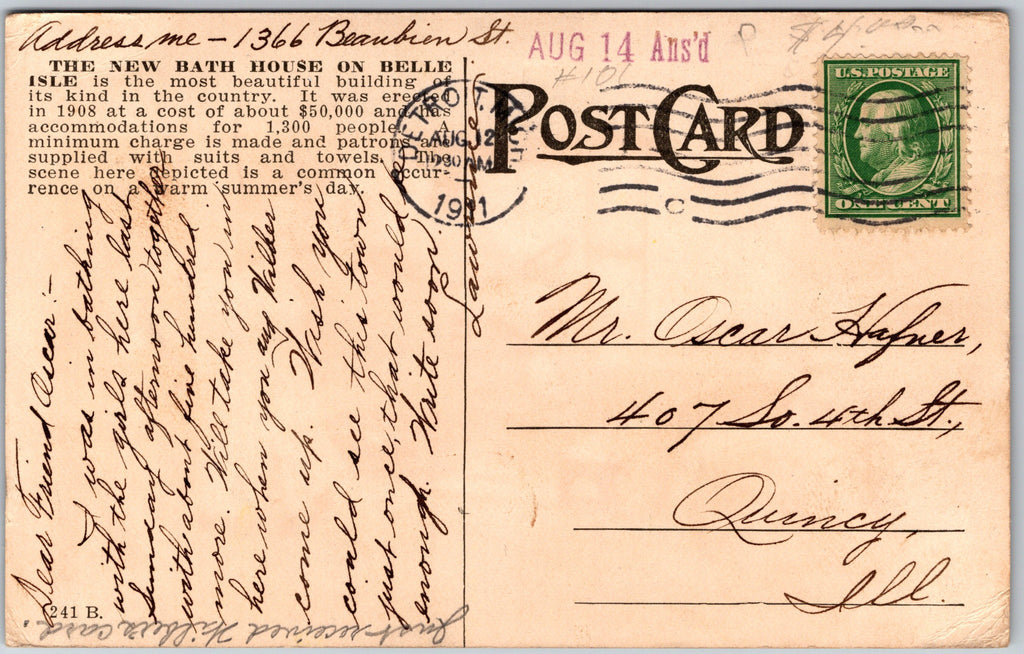 Address me - 1366 Beaubien St.
THE NEW BATH HOUSE ON BELLE
ISLE is the most beautiful building of
its kind in the country. It was erected
in 1908 at a cost of about $50,000 and has
accommodations for 1,300 people. A
minimum charge is made and patrons are
supplied with suits and towels. The
scene here depicted is a common occur-
rence on a warm summer's day.
Dear Friend Oscar:-
I was in bathing
with the girls here last
Sunday afternoon together
with about five hundred
more. Will take you in
here when you and Wilber
come up. Wish you
could see this town
just once, that would
enough. Write soon
Lawrence
241 B.
Just received Wilber's card.
AUG 14 Ans'd
#101
P
DETROIT, MICH
AUG 12
30 AM
1911
POST CARD
U.S. POSTAGE
ONE CENT
Mr. Oscar Hafner,
407 So. 4th St.,
Quincy,
Ill.